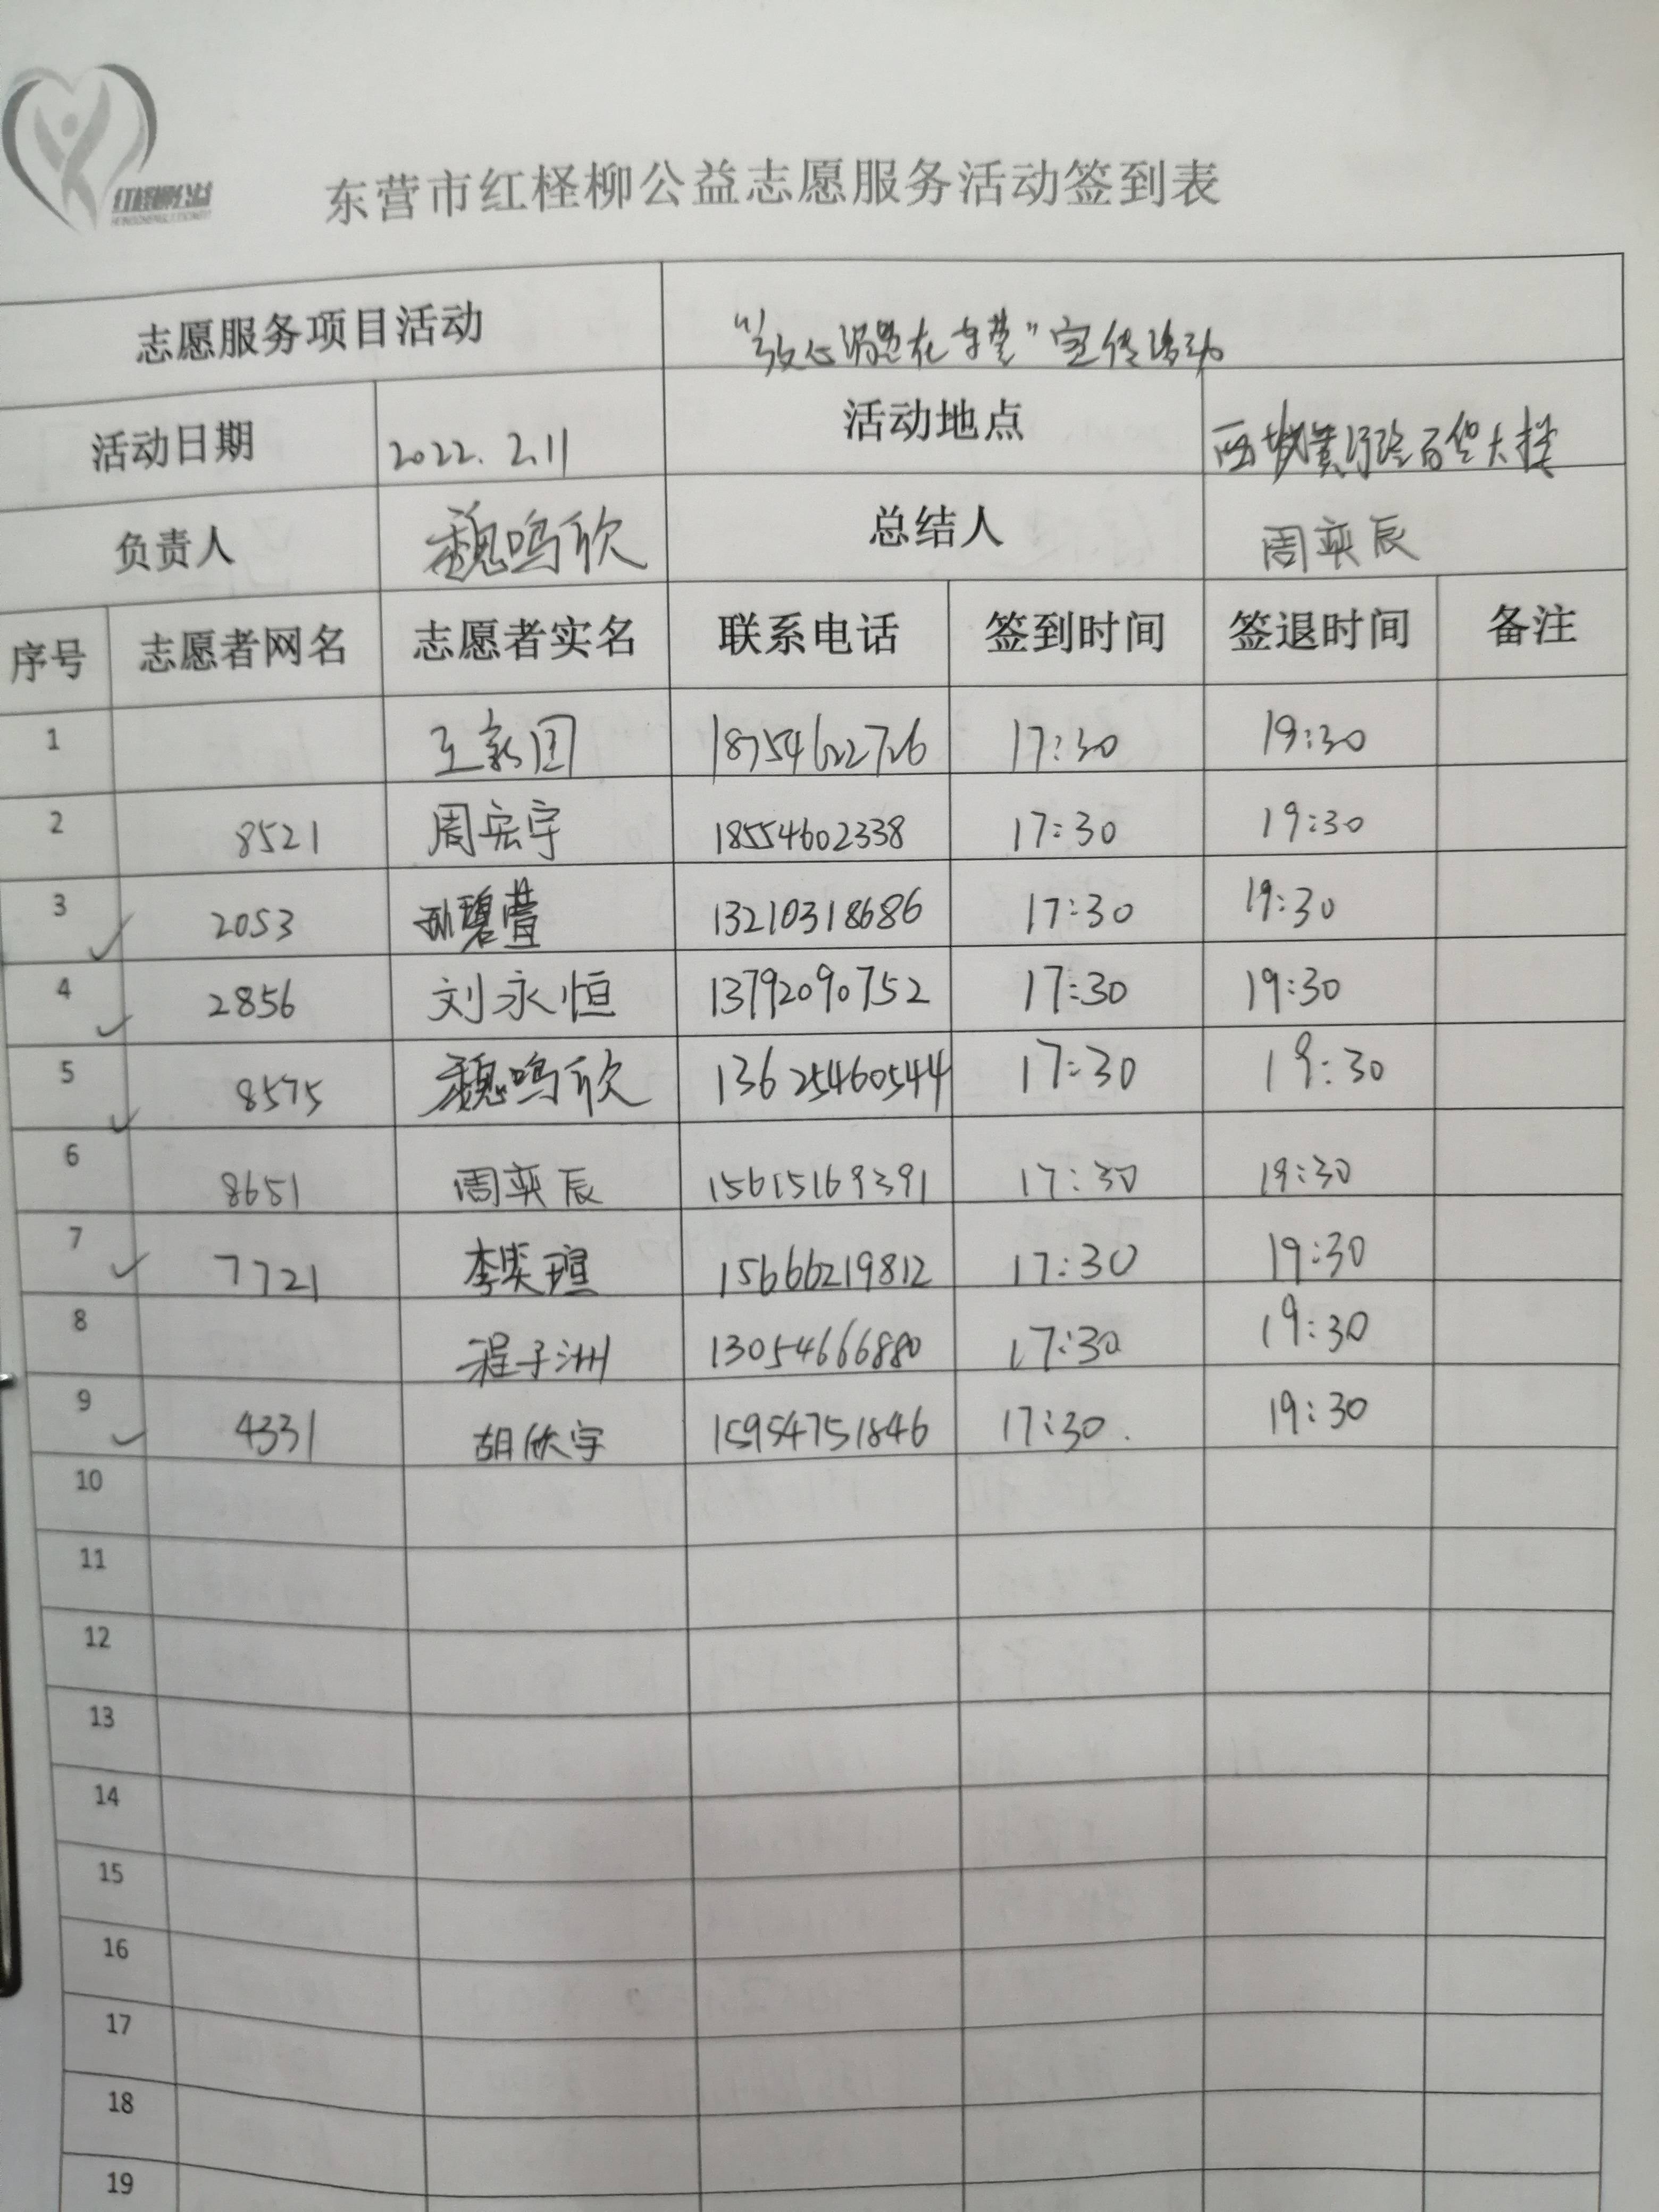 红柽柳公益
东营市红柽柳公益志愿服务活动签到表
志愿服务项目活动 “放心消费在东营”宣传活动
活动日期 2022.2.11 活动地点 西城黄河路百货大楼
负责人 魏鸣欣 总结人 周奕辰
序号 志愿者网名 志愿者实名 联系电话 签到时间 签退时间 备注
1 王新国 18754622726 17:30 19:30
2 8521 周宏宇 18554602338 17:30 19:30
3 2053 孙碧萱 13210318686 17:30 19:30
4 2856 刘永恒 13792090752 17:30 19:30
5 8575 魏鸣欣 13625460544 17:30 19:30
6 8651 周奕辰 15615169391 17:30 19:30
7 7721 李奕瑄 15666219812 17:30 19:30
8 程子洲 13054666880 17:30 19:30
9 4331 胡欣宇 15954751846 17:30. 19:30
10
11
12
13
14
15
16
17
18
19